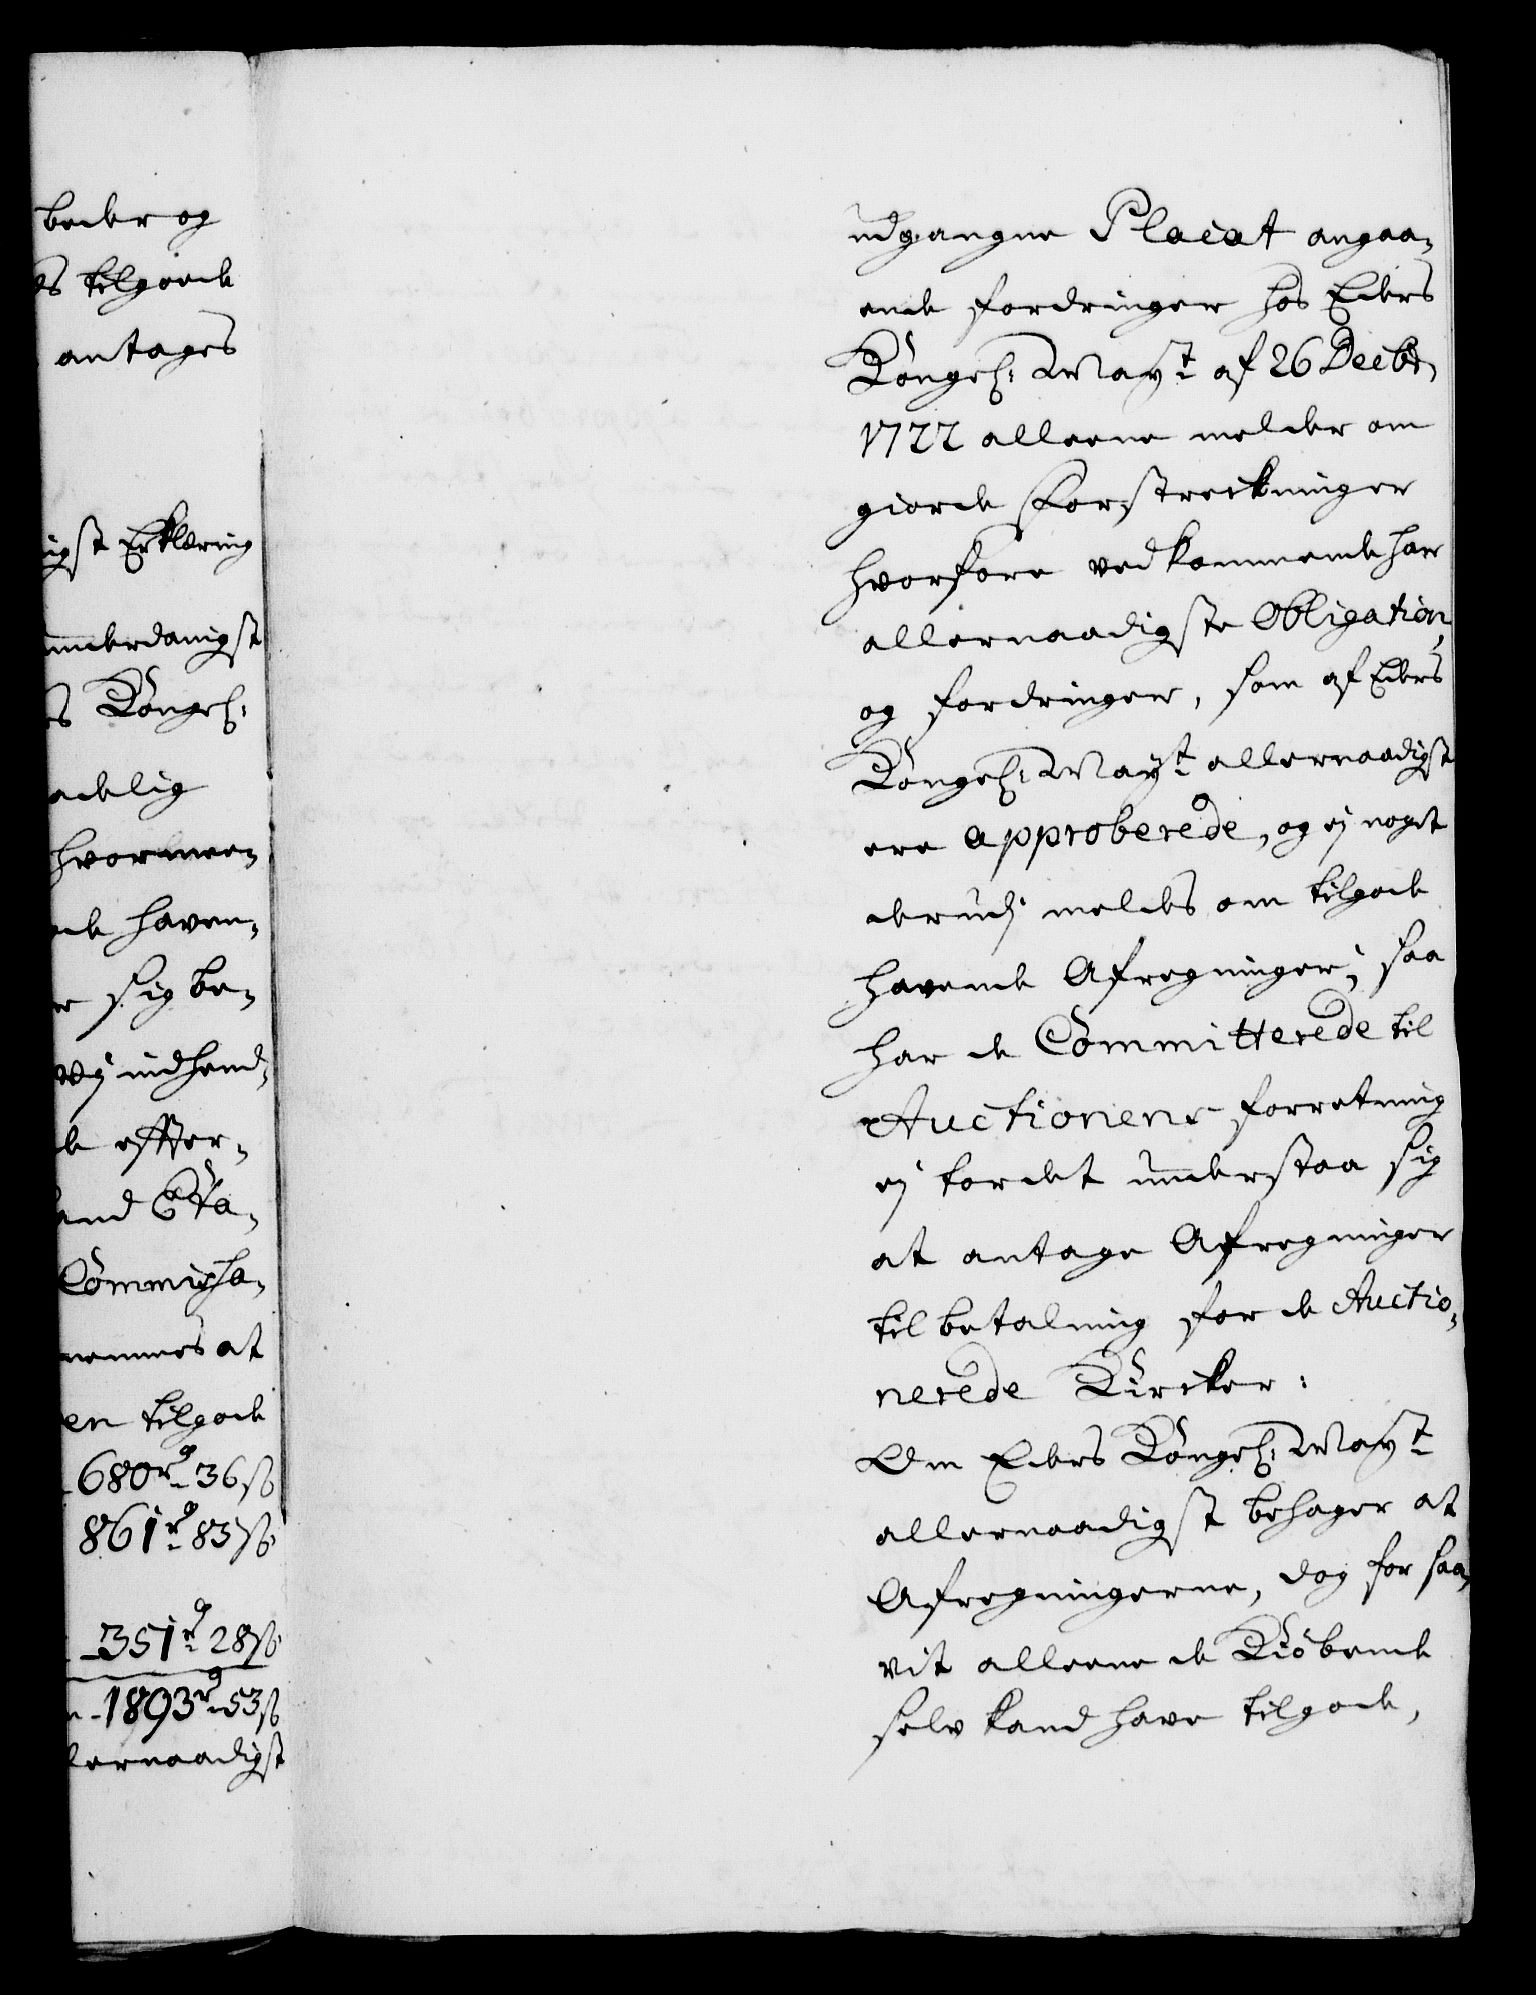 beder og
es tilgoede
antages
igst Erklæring
underdanigst
s Kongel:
adelig
hvormee-
de haven-
r sig be-
vij indhend-
de effter-
land Eta-
Commissa-
nemmes at
en tilgode
680 rd 36 ß
861 rd 85 ß
351 rd 28 ß
1893 rd 53 ß
lernaadigst
udgangne Placat angaa-
ende fordringer hos Eders
Kongel: Mayt af 26 Decbr
1722 alleene melder om
giorde Forstreckninger
hvorfore vedkommende har
allernaadigste Obligation,
og fordringer, som af Eders
Kongel: Mayt allernaadigst
ere approberede, og ej noget
derudj meldes om tilgode
havende Afregninger; saa
har de Committerede til
Auctionens forretning
ej tordet understaa sig
at antage Afregninger
til betalning for de Auctio-
nerede Kircker:
Om Eders Kongel: Mayt
allernaadigst behager at
Afregningerne, dog for saa
vit alleene de Kiöbende
selv kand have tilgode,